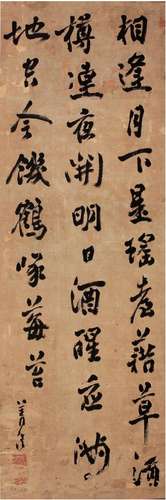 相逢月下是瑶臺藉草清
樽連夜開明日酒醒應滿
地空令饑鶴啄莓苔